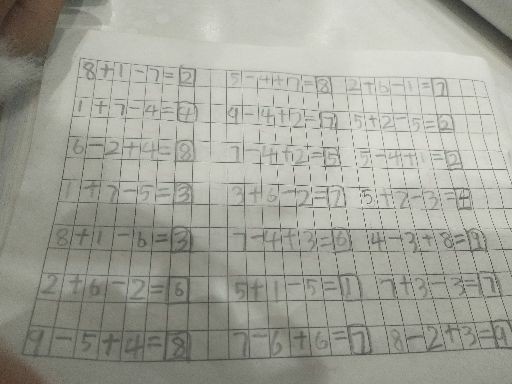 8+1-7=2 5-4+7=8 2+6-1=7
1+7-4=4 9-4+2=7 5+2-5=2
6-2+4=8 7-4+2=5 5-4+1=2
1+7-5=3 3+6-2=7 5+2-3=4
8+1-6=3 7-4+3=6 4-3+8=9
2+6-2=6 5+1-5=1 7+3-3=7
9-5+4=8 7-6+6=7 8-2+3=9